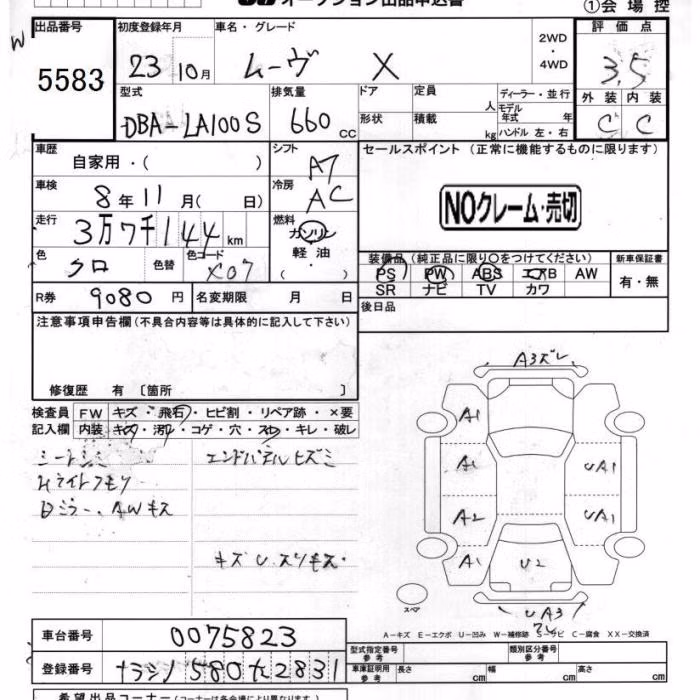 オークション出品申込書
①会場控
出品番号 初度登録年月 車名・グレード 2WD・4WD 評価点
5583 23年10月 ムーヴ X 3.5
型式 排気量 ドア 定員 人 ディーラー・並行 外装 内装
DBA-LA100S 660cc 形状 積載 kg モデル年式 年 ハンドル 左・右 C C
車歴 シフト セールスポイント(正常に機能するものに限ります)
自家用・( ) AT
車検 冷房
8年11月(日) AC NOクレーム・売切
走行 燃料
3万7千144km ガソリン
色 色替 色コード 軽油・( )
クロ X07
装備品(純正品に限り〇をつけてください) 新車保証書
PS PW ABS エアB AW 有・無
SR ナビ TV カワ
R券 9080円 名変期限 月 日
後日品
注意事項申告欄(不具合内容等は具体的に記入して下さい)
修復歴 有 〔箇所 〕
検査員 FW キズ・飛石・ヒビ割・リペア跡・×要
記入欄 内装 キズ・汚レ・コゲ・穴・スレ・キレ・破レ
シートシミ エンドパネルヒズミ
Hライトクモリ
Dミラー、AWキズ
キズU、スリキズ・
A3ズレ
A1
A1 UA1
A2 UA1
A1 U2
スペア
UA3
A-キズ E-エクボ U-凹み W-補修跡 S-サビ C-腐食 XX-交換済
車台番号 0075823
登録番号 580 2831
型式指定番号 参考 類別区分番号 参考
車庫証明用 参考 長さ cm 幅 cm 高さ cm
希望出品コーナー(コーナーは各会場により異なります)